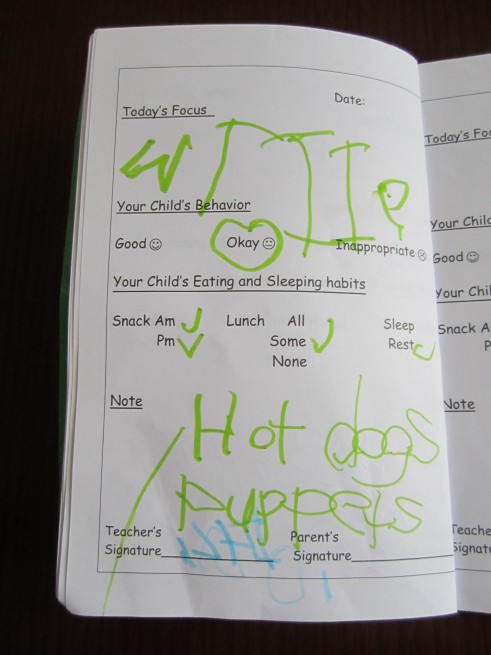 Date:
Today's Focus
Today's Foc
Your Child's Behavior
Your Chil
Good ☺ Okay 😐 Inappropriate ☹
Good ☺
Your Child's Eating and Sleeping habits
Your Chil
Snack Am Lunch All Sleep
Snack A
Pm Some Rest
P
None
Note
Note
Hot dogs
puppets
Teacher's Parent's
Teache
Signature Signature
Signat